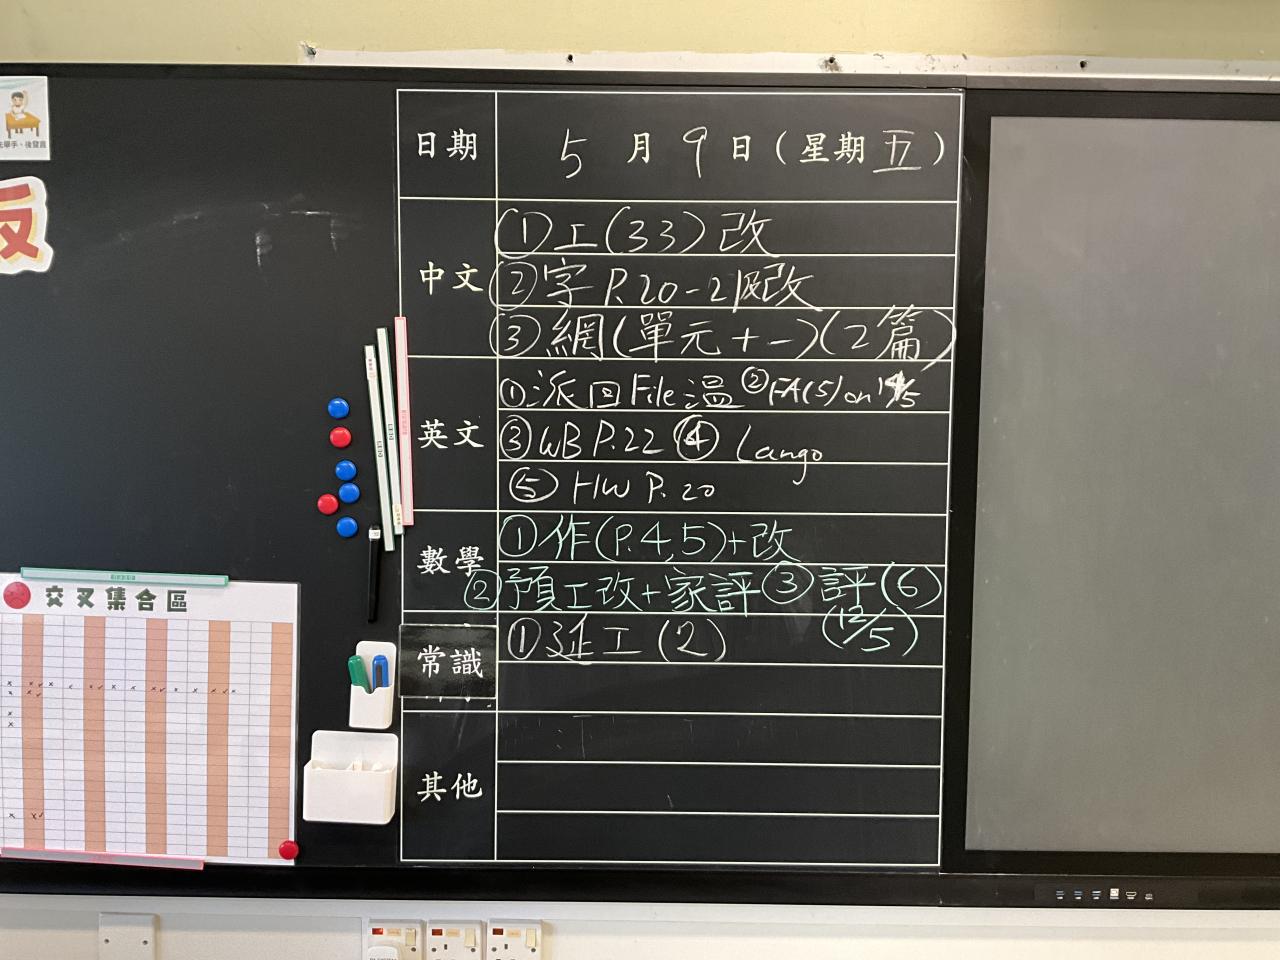 先舉手、後發言
反
日期 5月9日(星期五)
中文 ①工(33)改
②字P.20-21及改
③網(單元十一)(2篇)
英文 ①派回File溫 ②FA(5) on 14/5
③WB P.22 ④ Lango
⑤ HW P.20
數學 ①作(P.4,5)+改
②預工改+家評 ③評(6)
(12/5)
常識 ①延工(2)
其他
交叉集合區